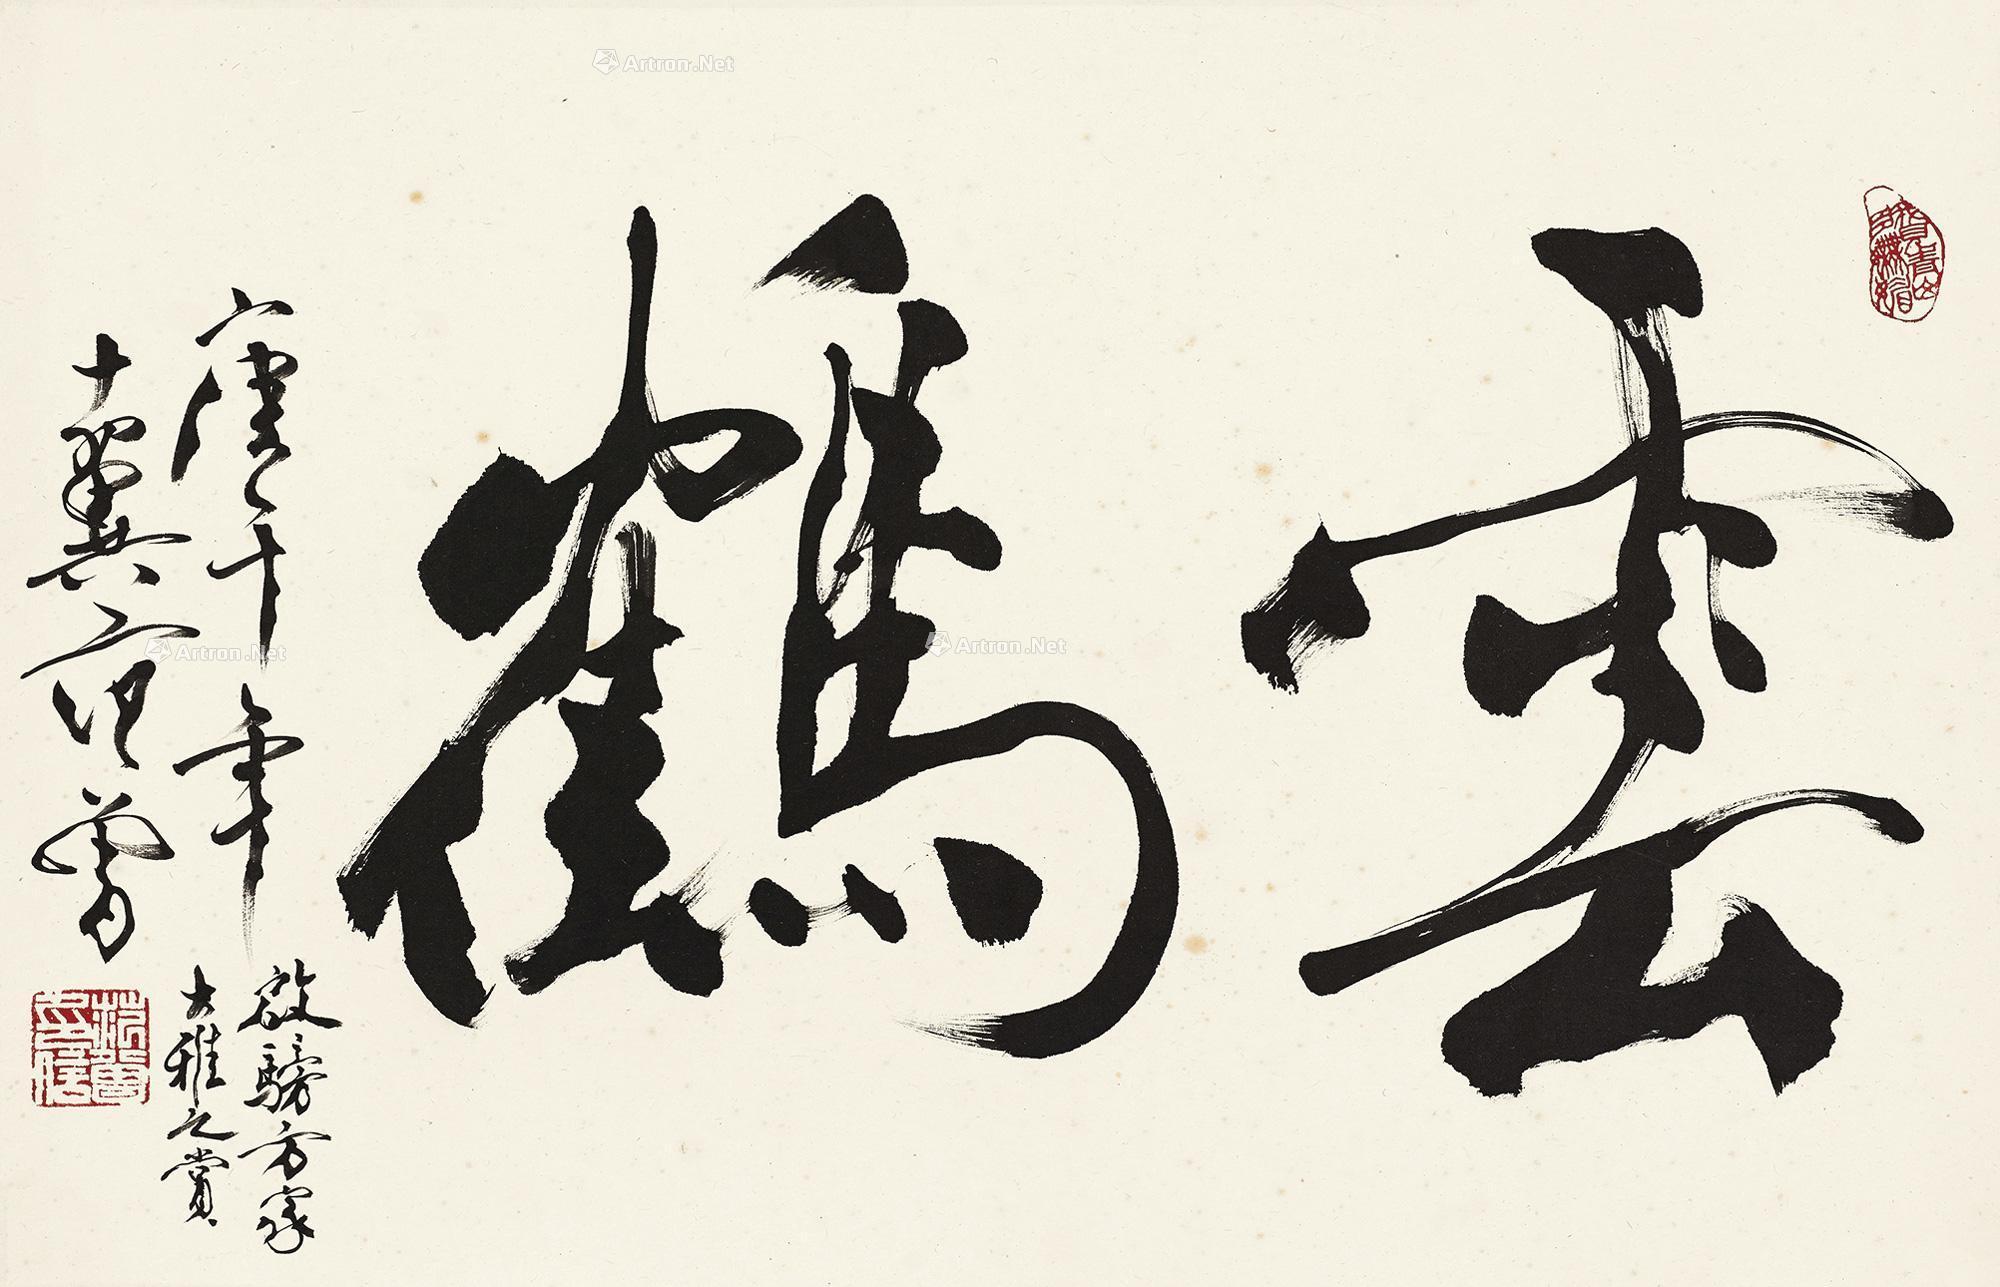 雲鶴
庚午年
十翼范曾
啟騯方家
大雅之賞
Artron.Net
Artron.Net
Artron.Net